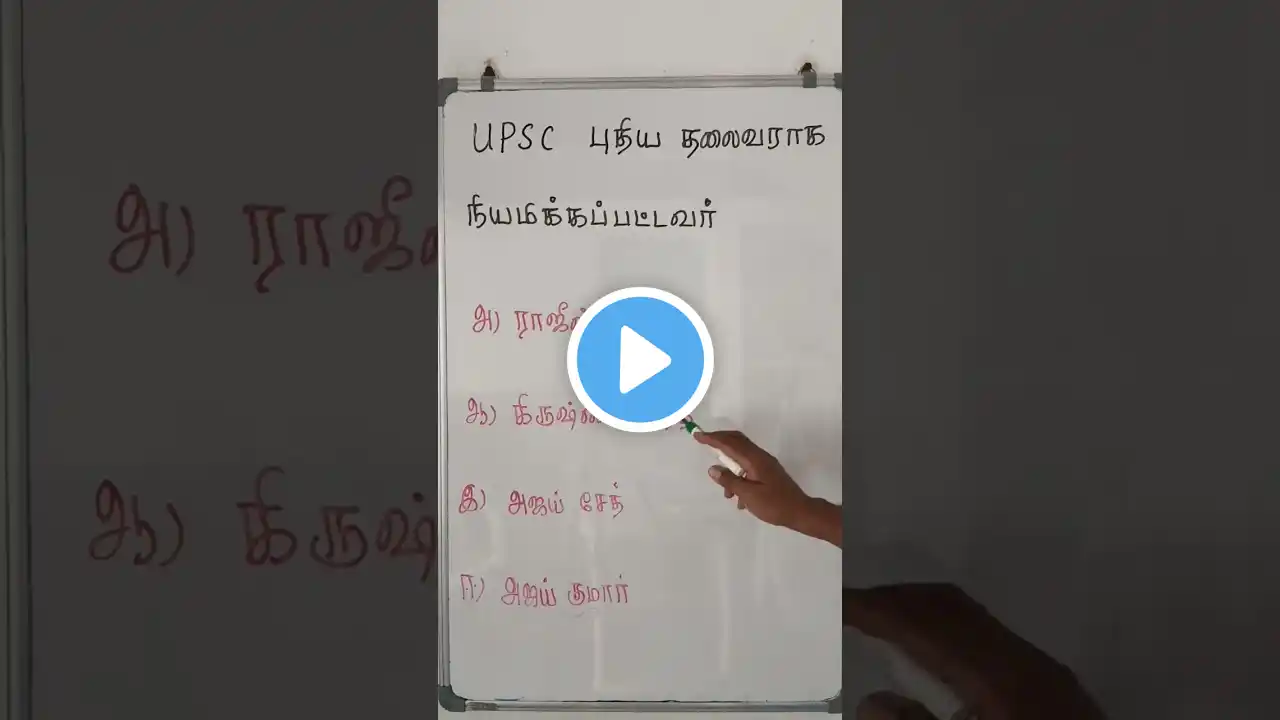 UPSC புதிய தலைவராக
நியமிக்கப்பட்டவர்
அ)
ஆ)
இ) அஜய் சேத்
ஈ) அஜய் குமார்